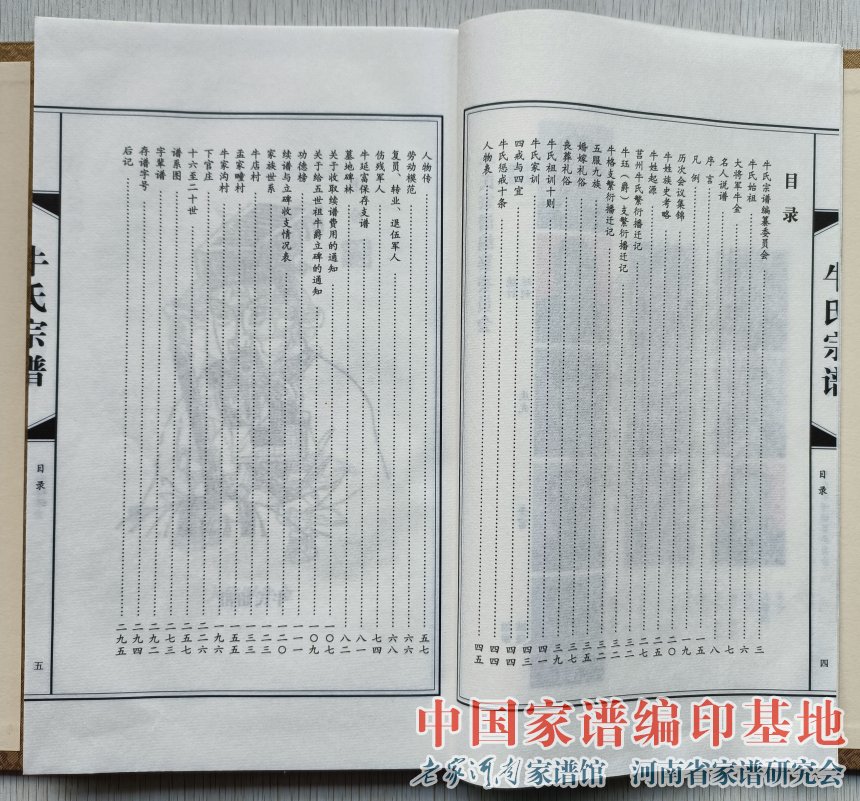 牛氏宗谱
目录
四
目录
牛氏宗谱编纂委员会……三
牛氏始祖……六
大将军牛金……七
名人说谱……八
序言……一五
凡例……一九
历次会议集锦……二〇
牛姓族史考略……二五
牛姓起源……二七
莒州牛氏繁衍播迁记……三二
牛珏（爵）支繁衍播迁记……三二
牛格支繁衍播迁记……三二
五服九族……三五
婚嫁礼俗……三七
丧葬礼俗……三九
牛氏祖训十则……四一
牛氏家训……四三
四戒与四宜……四四
牛氏惩戒十条……四四
人物表……四五
人物传……五七
劳动模范……六六
复员、转业、退伍军人……六八
伤残军人……七四
牛延富保存支谱……八一
墓地碑林……八二
关于收取续谱费用的通知……一〇七
关于给五世祖牛爵立碑的通知……一〇九
功德榜……一一一
续谱与立碑收支情况表……一二〇
家族世系……一二三
牛店村……一三三
孟家疃村……一五五
牛家沟村……一九六
下官庄……二二六
十六至二十世……二五七
谱系图……二七三
字辈谱……二九二
存谱字号……二九四
后记……二九五
牛氏宗谱
目录
五
中国家谱编印基地
老家河南家谱馆 河南省家谱研究会